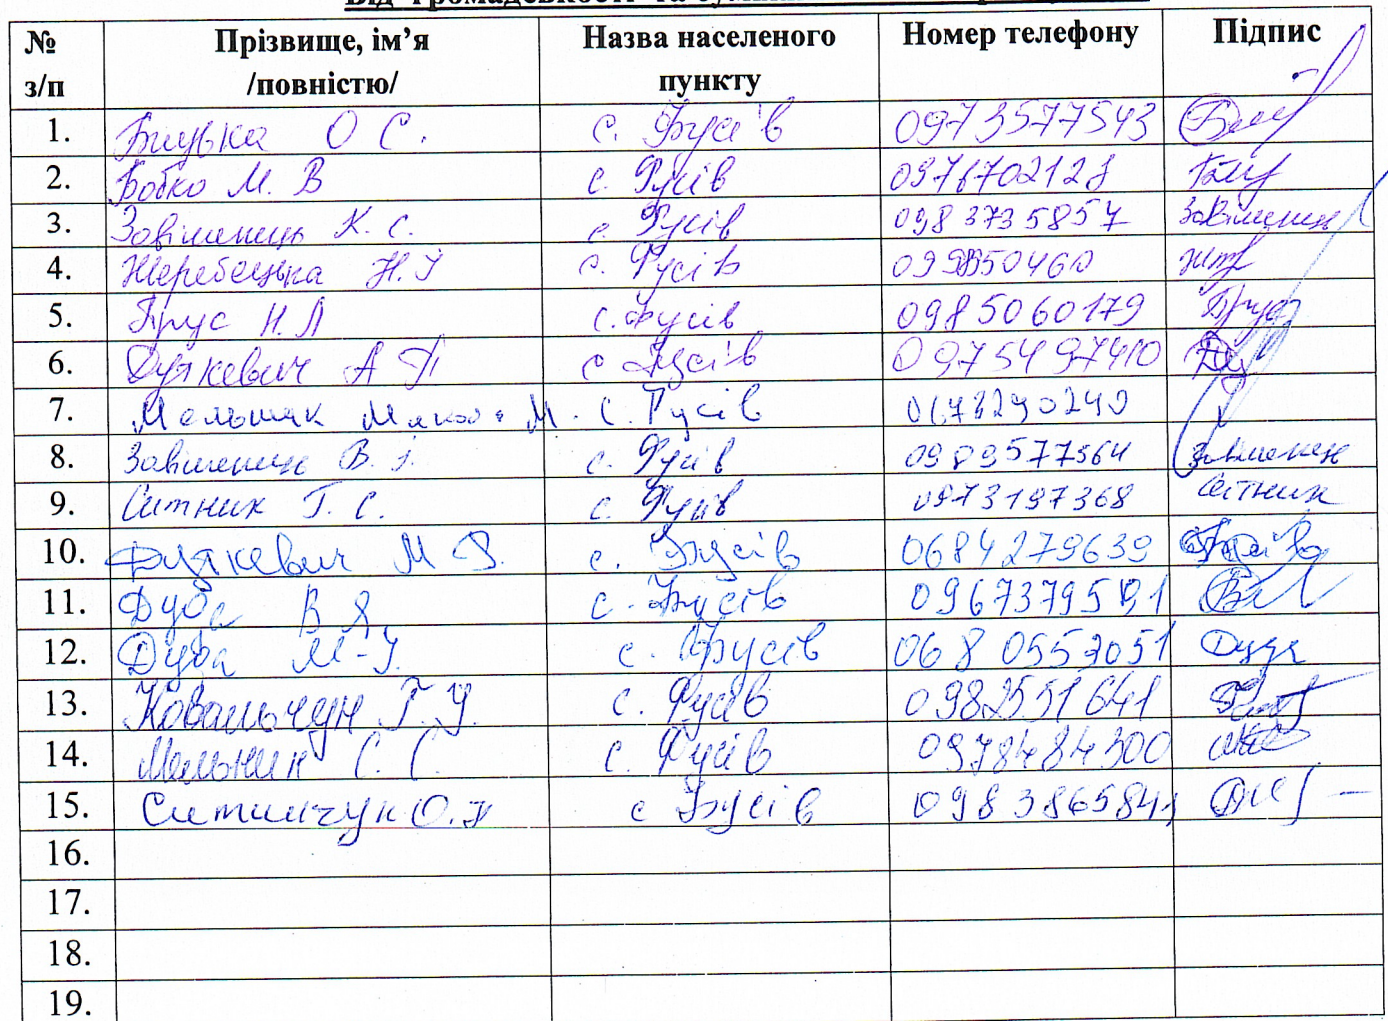 № з/п Прізвище, ім’я /повністю/ Назва населеного пункту Номер телефону Підпис
1. О С. с. 0973577543
2. Бобко М. В с. Русів 0976702128
3. Завіленець К. С. с. Русів 0983735857 Завіленець
4. Жеребецька Н. І с. Русів
5. Н. Л с. Русів 0985060179
6. Дуткевич А П с Русів 0975497410
7. Мельник М. с. Русів 0673290249
8. Завіленець В. І. с. Русів 0989577564 Завіленец
9. Ситник Г. С. с. Русів 0973197368 Ситник
10. Дуткевич М с. Русів 0684279639
11. Дуда В Я с. Русів
12. Дуда М-І. с. Русів 0680557051 Дуда
13. Ковальчук Г. с. Русів 0982551641
14. Мельник С. С. с. Русів 0978484300
15. О. с Русів 0983865841
16.
17.
18.
19.